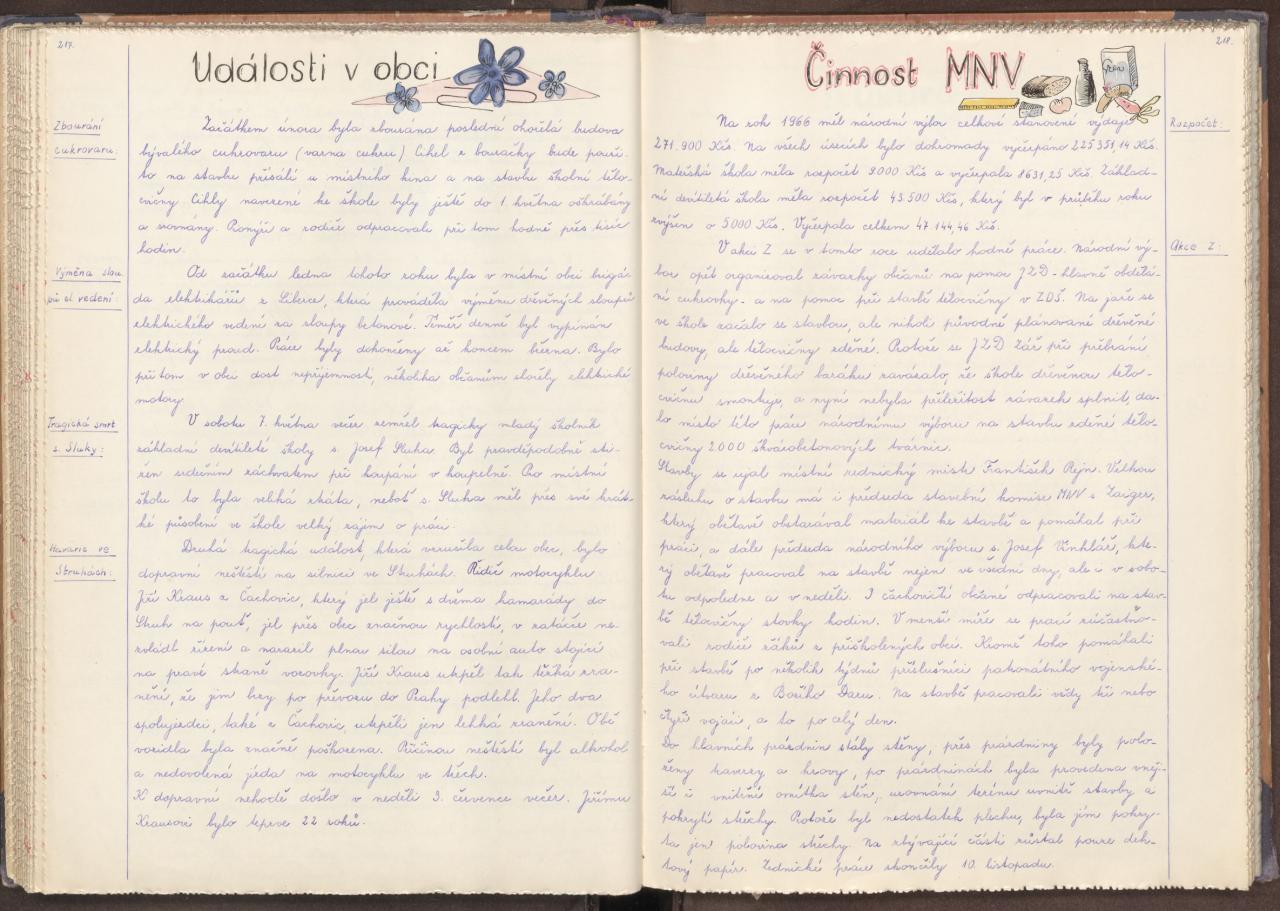 217.
Události v obci
Zbourání
cukrovaru:
Začátkem února byla zbourána poslední ohořelá budova
bývalého cukrovaru (varna cukru) Cihel z bouračky bude použi-
to na stavbu přísálí u místního kina a na stavbu školní tělo-
cvičny. Cihly navezené ke škole byly ještě do 1. května oškrábány
a srovnány. Ponýři a rodiče odpracovali při tom hodně přes tisíc
hodin.
Výměna slou
pů el. vedení:
Od začátku ledna tohoto roku byla v místní obci brigá-
da elektrikářů z Liberce, která prováděla výměnu dřevěných sloupů
elektrického vedení za sloupy betonové. Téměř denně byl vypínán
elektrický proud. Práce byly dokončeny až koncem března. Bylo
při tom v obci dost nepříjemností, několika občanům shořely elektrické
motory.
Tragická smrt
s. Sluky:
V sobotu 7. května večer zemřel tragicky mladý školník
základní devítileté školy s. Josef Sluka. Byl pravděpodobně sti-
žen srdečním záchvatem při koupání v koupelně. Pro místní
školu to byla velká ztráta, neboť s. Sluka měl přes své krát-
ké působení ve škole velký zájem o práci.
Havarie ve
Struhách:
Druhá tragická událost, která vzrušila celou obec, bylo
dopravní neštěstí na silnici ve Struhách. Řidič motocyklu
Jiří Kraus z Čachovic, který jel ještě s dvěma kamarády do
Struh na pouť, jel přes obec značnou rychlostí, v zatáčce ne-
zvládl řízení a narazil plnou silou na osobní auto stojící
na pravé straně vozovky. Jiří Kraus utrpěl tak těžká zra-
nění, že jim brzy po převozu do Prahy podlehl. Jeho dva
spolujezdci, také z Čachovic, utrpěli jen lehká zranění. Obě
vozidla byla značně poškozena. Příčinou neštěstí byl alkohol
a nedovolená jízda na motocyklu ve třech.
K dopravní nehodě došlo v neděli 3. července večer. Jiřímu
Krausovi bylo teprve 22 roků.
218.
Činnost MNV
Rozpočet:
Na rok 1966 měl národní výbor celkově stanovené výdaje
271.900 Kčs. Na všech úsecích bylo dohromady vyčerpáno 225 351,14 Kčs.
Mateřská škola měla rozpočet 9000 Kčs a vyčerpala 8631,25 Kčs. Základ-
ní devítiletá škola měla rozpočet 43.500 Kčs, který byl v průběhu roku
zvýšen o 5000 Kčs. Vyčerpala celkem 47.144,46 Kčs.
Akce Z:
V akci Z se v tomto roce udělalo hodně práce. Národní vý-
bor opět organizoval závazky občanů na pomoc JZD - hlavně obdělá-
ní cukrovky - a na pomoc při stavbě tělocvičny v ZDŠ. Na jaře se
ve škole začalo se stavbou, ale nikoli původně plánované dřevěné
budovy, ale tělocvičny zděné. Protože se JZD Zář při přebrání
poloviny dřevěného baráku zavázalo, že škole dřevěnou tělo-
cvičnu smontuje, a nyní nebyla příležitost závazek splnit, da-
lo místo této práce národnímu výboru na stavbu zděné tělo-
cvičny 2000 škvárobetonových tvárnic.
Stavby se ujal místní zednický mistr František Rejn. Velkou
zásluhu o stavbu má i předseda stavební komise MNV s. Zaiger,
který obětavě obstarával materiál ke stavbě a pomáhal při
práci, a dále předseda národního výboru s. Josef Vinklář, kte-
rý obětavě pracoval na stavbě nejen ve všední dny, ale i v sobo-
tu odpoledne a v neděli. I čachovičtí občané odpracovali na stav-
bě tělocvičny stovky hodin. V menší míře se prací zúčastňo-
vali rodiče žáků z přiškolených obcí. Kromě toho pomáhali
při stavbě po několik týdnů příslušníci patronátního vojenské-
ho útvaru z Božího Daru. Na stavbě pracovali vždy tři nebo
čtyři vojáci, a to po celý den.
Do hlavních prázdnin stály stěny, přes prázdniny byly polo-
ženy traverzy a krovy, po prázdninách byla provedena vněj-
ší i vnitřní omítka stěn, urovnání terénu uvnitř stavby a
pokrytí střechy. Protože byl nedostatek plechu, byla jím pokry-
ta jen polovina střechy. Na zbývající části zůstal pouze deh-
tový papír. Zednické práce skončily 10. listopadu.